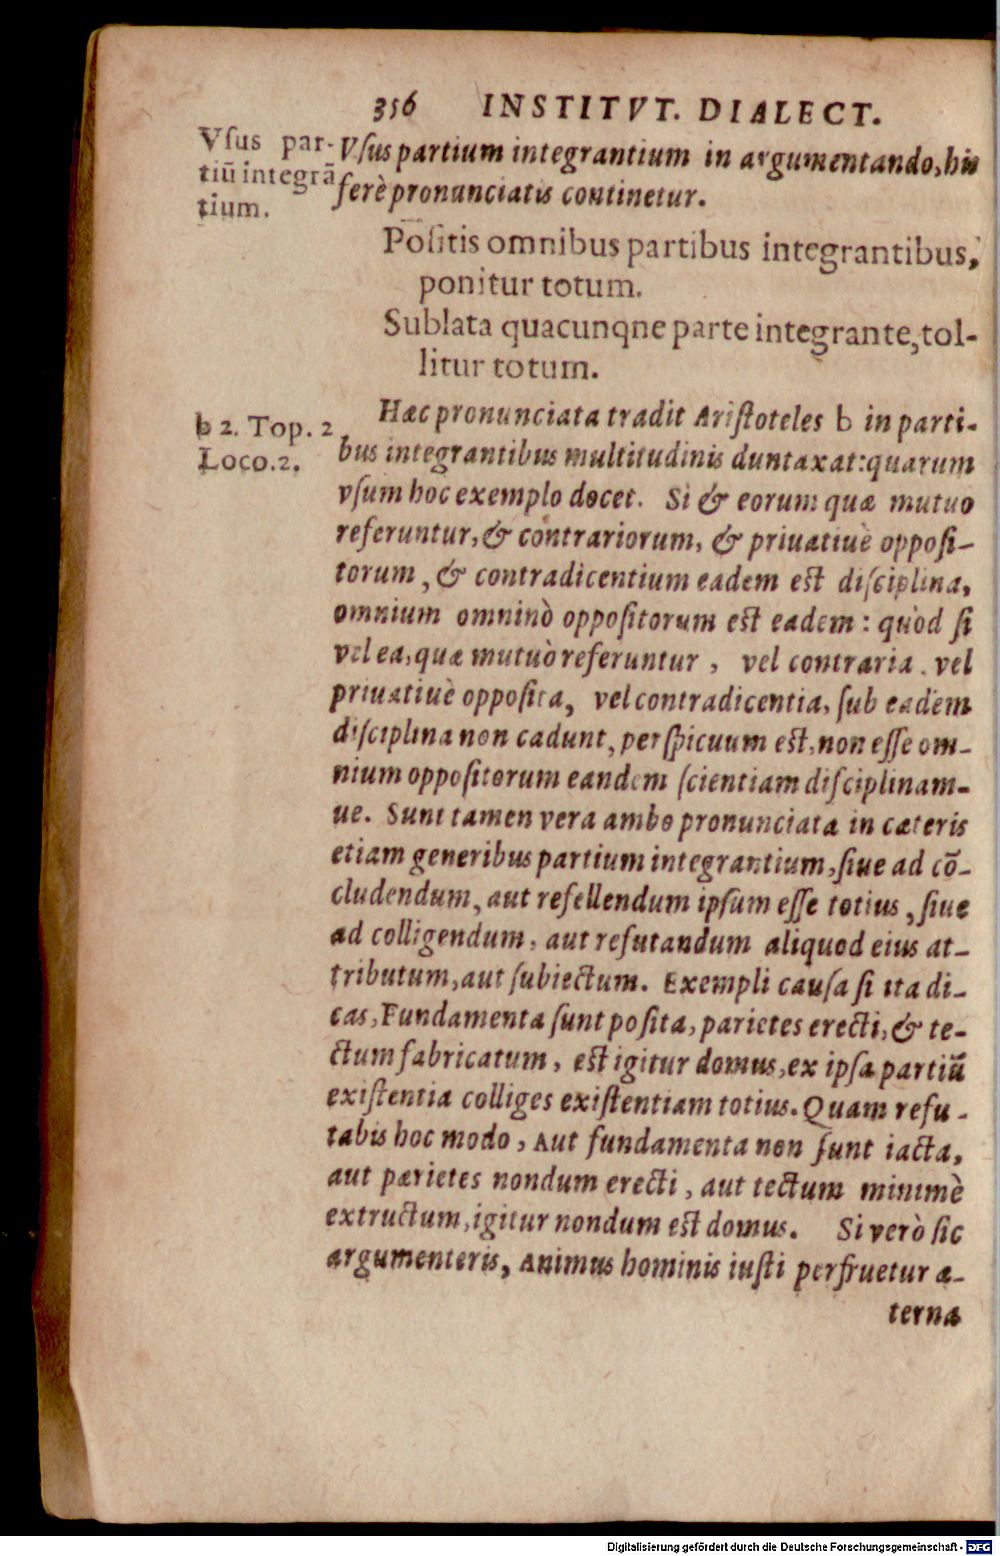 356 INSTITVT. DIALECT.
Vſus par-
tiũ integrã
tium.
Vſus partium integrantium in argumentando, his
ferè pronunciatis continetur.
Poſitis omnibus partibus integrantibus,
ponitur totum.
Sublata quacunqne parte integrante, tol-
litur totum.
b 2. Top. 2
Loco. 2.
Hæc pronunciata tradit Ariſtoteles b in parti-
bus integrantibus multitudinis duntaxat: quarum
vſum hoc exemplo docet. Si & eorum quæ mutuo
referuntur, & contrariorum, & priuatiuè oppoſi-
torum, & contradicentium eadem eſt diſciplina,
omnium omninò oppoſitorum eſt eadem: quòd ſi
vel ea, quæ mutuò referuntur, vel contraria, vel
priuatiuè oppoſita, vel contradicentia, ſub eadem
diſciplina non cadunt, perſpicuum eſt, non eſſe om-
nium oppoſitorum eandem ſcientiam diſciplinam-
ue. Sunt tamen vera ambo pronunciata in cæteris
etiam generibus partium integrantium, ſiue ad cõ-
cludendum, aut refellendum ipſum eſſe totius, ſiue
ad colligendum, aut refutandum aliquod eius at-
tributum, aut ſubiectum. Exempli cauſa ſi ita di-
cas, Fundamenta ſunt poſita, parietes erecti, & te-
ctum fabricatum, eſt igitur domus, ex ipſa partiũ
exiſtentia colliges exiſtentiam totius. Quam refu-
tabis hoc modo, Aut fundamenta non ſunt iacta,
aut pærietes nondum erecti, aut tectum minimè
extructum, igitur nondum eſt domus. Si verò ſic
argumenteris, Animus hominis iuſti perfruetur æ-
terna
Digitalisierung gefördert durch die Deutsche Forschungsgemeinschaft - DFG